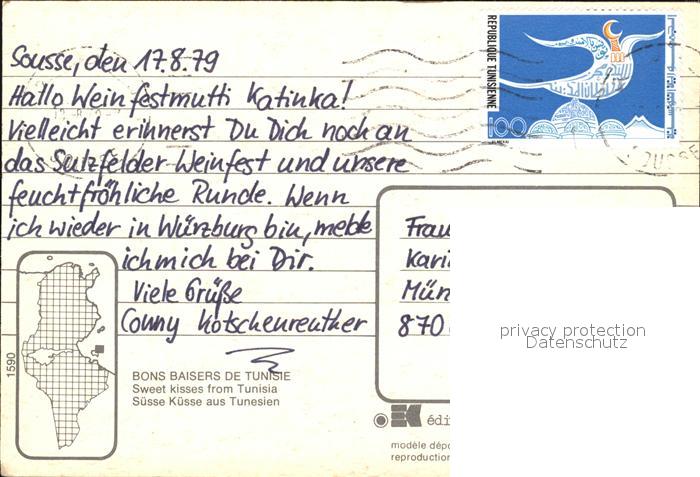 Sousse, den 17.8.79
Hallo Weinfestmutti Katinka!
Vielleicht erinnerst Du Dich noch an
das Sulzfelder Weinfest und unsere
feuchtfröhliche Runde. Wenn
ich wieder in Würzburg bin, melde
ich mich bei Dir.
Viele Grüße
Conny Kotschenreuther
REPUBLIQUE TUNISIENNE
100
Frau
Kari
Mün
870
privacy protection
Datenschutz
1590
BONS BAISERS DE TUNISIE
Sweet kisses from Tunisia
Süsse Küsse aus Tunesien
édi
modèle dépo
reproduction